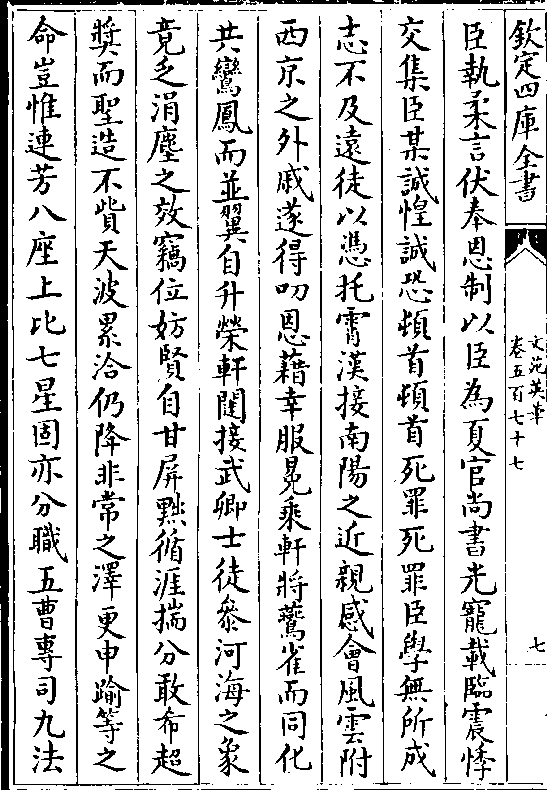 欽定四庫全書
文苑英華
卷五百七十七
七
臣執柔言伏奉恩制以臣為夏官尚書光寵載臨震悸
交集臣某誠惶誠恐頓首頓首死罪死罪臣學無所成
志不及遠徒以憑托霄漢接南陽之近親感會風雲附
西京之外戚遂得叨恩藉幸服冕乘軒將鷰雀而同化
共鸞鳳而並翼自升榮軒闥接武卿士徒參河海之象
竟乏涓塵之效竊位妨賢自甘屏黜循涯揣分敢希超
奬而聖造不貲天波累洽仍降非常之澤更申踰等之
命豈惟連芳八座上比七星固亦分職五曹專司九法